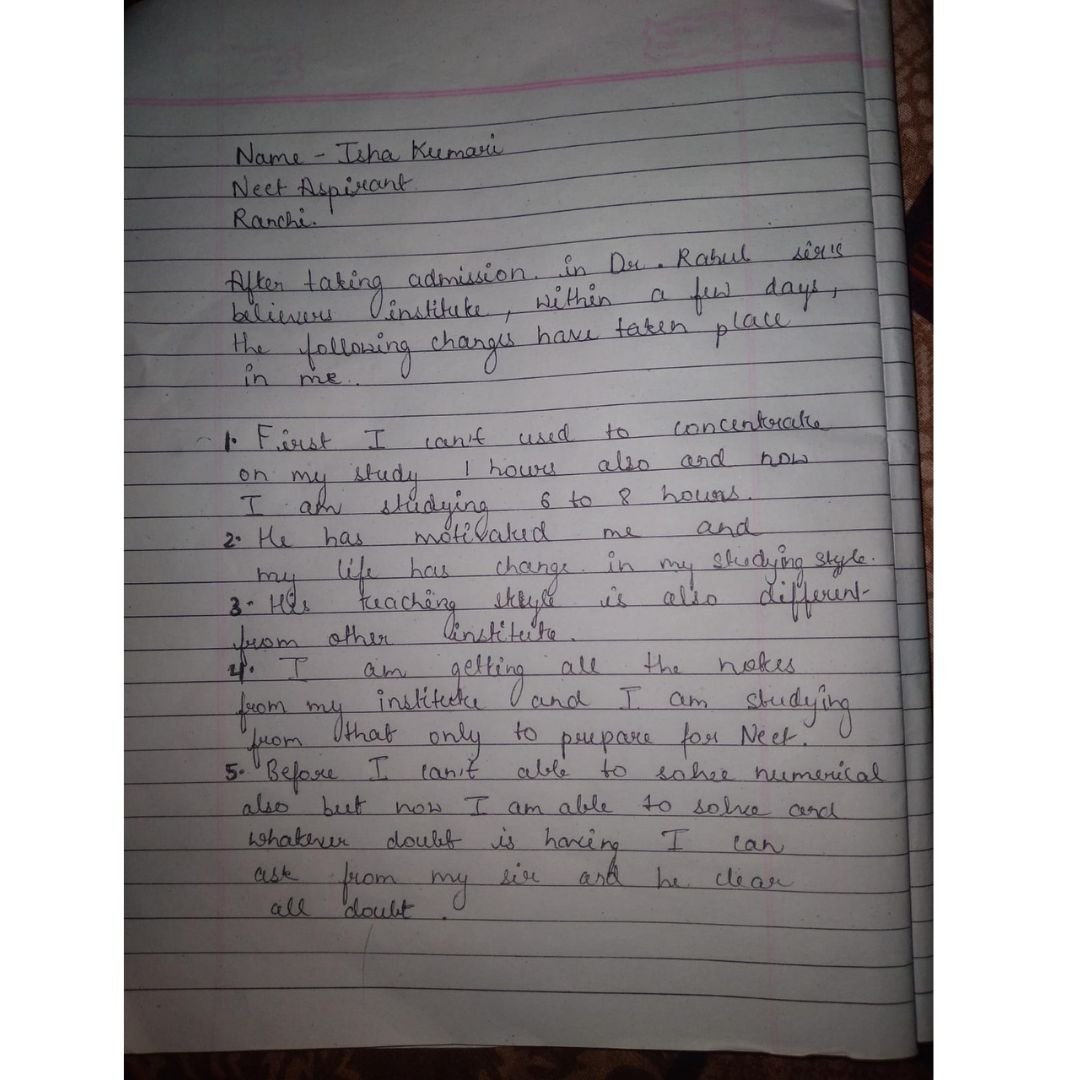 Name - Isha Kumari
Neet Aspirant
Ranchi.
After taking admission. in Dr. Rahul sir's
believers institute, within a few days,
the following changes have taken place
in me..
1. First I can't used to concentrate
on my study 1 hours also and now
I am studying 6 to 8 hours.
2. He has motivated me and
my life has change. in my studying style.
3. His teaching style is also different
from other institute.
4. I am getting all the notes
from my institute and I am studying
from that only to prepare for Neet.
5. Before I can't able to solve numerical
also but now I am able to solve and
whatever doubt is having I can
ask from my sir and he clear
all doubt.